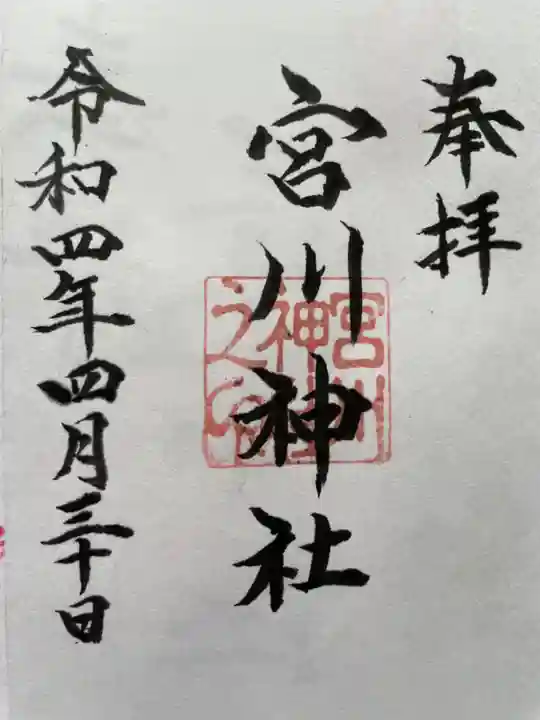 奉拝
宮川神社
宮川
神社
之印
令和四年四月三十日